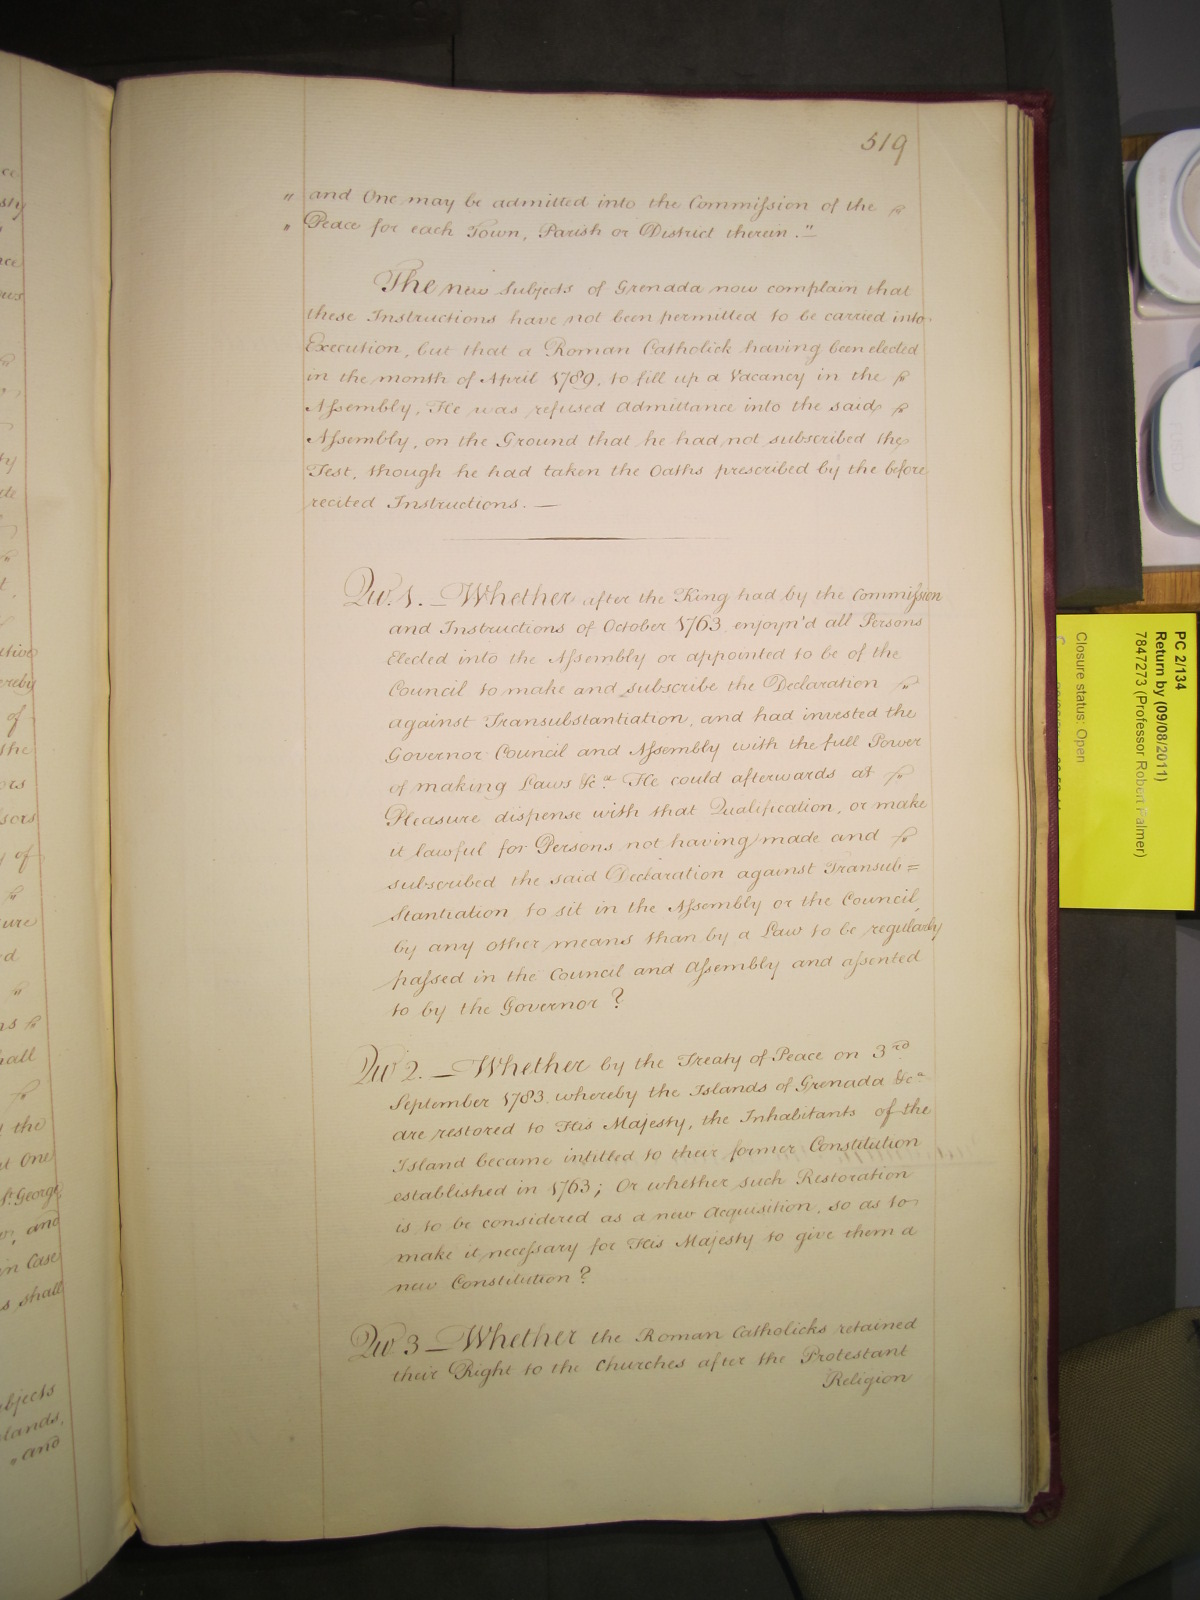 519
" and One may be admitted into the Commission of the
" Peace for each Town, Parish or District therein."
The new Subjects of Grenada now complain that
these Instructions have not been permitted to be carried into
Execution, but that a Roman Catholick having been elected
in the month of April 1789, to fill up a Vacancy in the
Assembly, He was refused admittance into the said
Assembly, on the Ground that he had not subscribed the
Test, though he had taken the Oaths prescribed by the before
recited Instructions. —
Qu. 1. — Whether after the King had by the Commission
and Instructions of October 1763, enjoyn'd all Persons
Elected into the Assembly or appointed to be of the
Council to make and subscribe the Declaration
against Transubstantiation, and had invested the
Governor Council and Assembly with the full Power
of making Laws &ca. He could afterwards at
Pleasure dispense with that Qualification, or make
it lawful for Persons not having made and
subscribed the said Declaration against Transub=
stantiation to sit in the Assembly or the Council,
by any other means than by a Law to be regularly
passed in the Council and Assembly and assented
to by the Governor?
Qu 2. — Whether by the Treaty of Peace on 3rd
September 1783, whereby the Islands of Grenada &ca
are restored to His Majesty, the Inhabitants of the
Island became intitled to their former Constitution
established in 1763; Or whether such Restoration
is to be considered as a new Acquisition, so as to
make it necessary for His Majesty to give them a
new Constitution?
Qu 3 — Whether the Roman Catholicks retained
their Right to the Churches after the Protestant
Religion
PC 2/134
Return by (09/08/2011)
7847273 (Professor Robert Palmer)
Closure status: Open